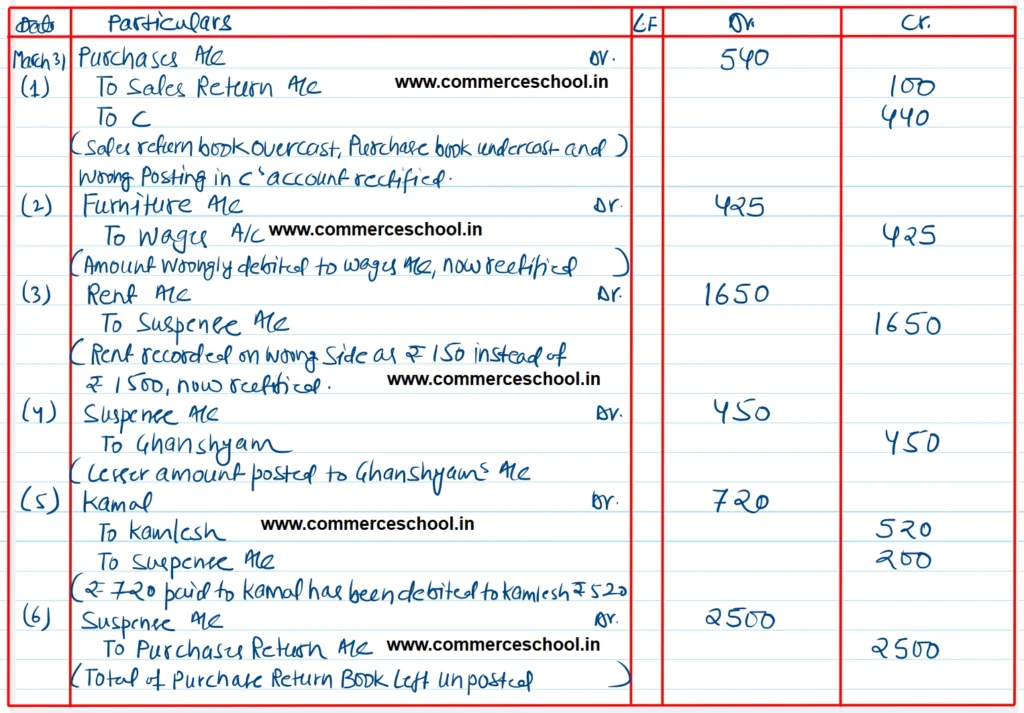 Date Particulars LF Dr. Cr.
March 31 Purchases A/c Dr. 540
(1) To Sales Return A/c www.commerceschool.in 100
To C 440
(Sales return book overcast, Purchase book undercast and)
wrong Posting in C's account rectified.
(2) Furniture A/c Dr. 425
To wages A/c www.commerceschool.in 425
(Amount wrongly debited to wages A/c, now rectified)
(3) Rent A/c Dr. 1650
To Suspense A/c 1650
(Rent recorded on wrong side as ₹ 150 instead of
₹ 1500, now rectified. www.commerceschool.in
(4) Suspense A/c Dr. 450
To Ghanshyam 450
(Lesser amount posted to Ghanshyam's A/c
(5) Kamal Dr. 720
To Kamlesh www.commerceschool.in 520
To Suspense A/c 200
(₹ 720 paid to Kamal has been debited to Kamlesh ₹ 520
(6) Suspense A/c Dr. 2500
To Purchases Return A/c www.commerceschool.in 2500
(Total of Purchase Return Book Left unposted)